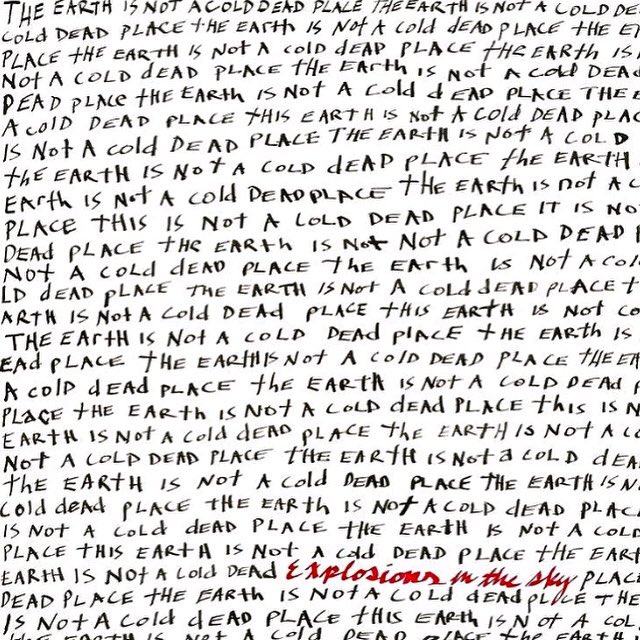 THE EARTH IS NOT A COLD DEAD PLACE THE EARTH IS NOT A COLD DE
COLD DEAD PLACE tHE EARth IS Not A cold dEAD PLACE tHE E
PLACE tHE EARTH IS Not A cold dEAD PLACE tHE EARTH IS
Not A COLD dEAD PLACE THE EARth IS Not A cold DEAD
DEAD plAce tHE EARth IS Not A Cold d EAD PLACE THE E
A colD DEAD PLACE tHIS EARtH IS Not A Cold DEAD PLAC
IS Not A cold DEAD PLACE THE EARtH IS Not A COLD
the EARTH IS NotA COLD dEAD PLACE the EARTH
EARth IS Not A cold DEADPLACE tHE EARTH IS not A C
PLACE THIS IS Not A COLD DEAD PLACE IT IS NO
DEAd PLACE tHE EARth IS Not Not A COLD DEAD P
NOT A Cold dEAD PLACE the EARth IS Not A Col
LD dEAD pLACE THE EARTH IS Not A cold dEAD PLACE t
ARTH IS NOtA Cold DEAd PLACE tHIS EARTH IS Not Co
THE EARtH IS Not A COLD DEAD PlACE tHE EARTH IS
EAd pLACE tHE EARtHIS Not A ColD DEAD PLACE THE EA
A ColD dEAD PLACE thE EARtH IS Not A COLD DEAD
PLACE tHE EARth IS Not A COLD dEAd PLACE this IS N
EARTH IS Not A cold dEAD pLACE the EARTH IS Not A C
Not A COLD DEAD PLACE tHE EARTH IS Not a COLD dEA
tHE EARTH IS Not A cold DEAD PLACE tHE EARTH IS N
cold dead PLACE tHE EARTH IS Not A COLD DEAD PLAC
IS Not A cold dEAD PLACE tHE EARTH IS Not A COLD
PLACE tHIS EARTH IS Not A cold DEAD PLACE tHE EART
EARTH IS Not A Cold DEAD Explosions in the sky PLACE
DEAD PLACE tHE EARtH IS Not A Cold dEAd pLACE tHE
IS Not A cold dEAD PLACE tHIS EARtH IS Not A COL
tHE EARTH IS Not A Cold DEAD PLACE tHE EARTH